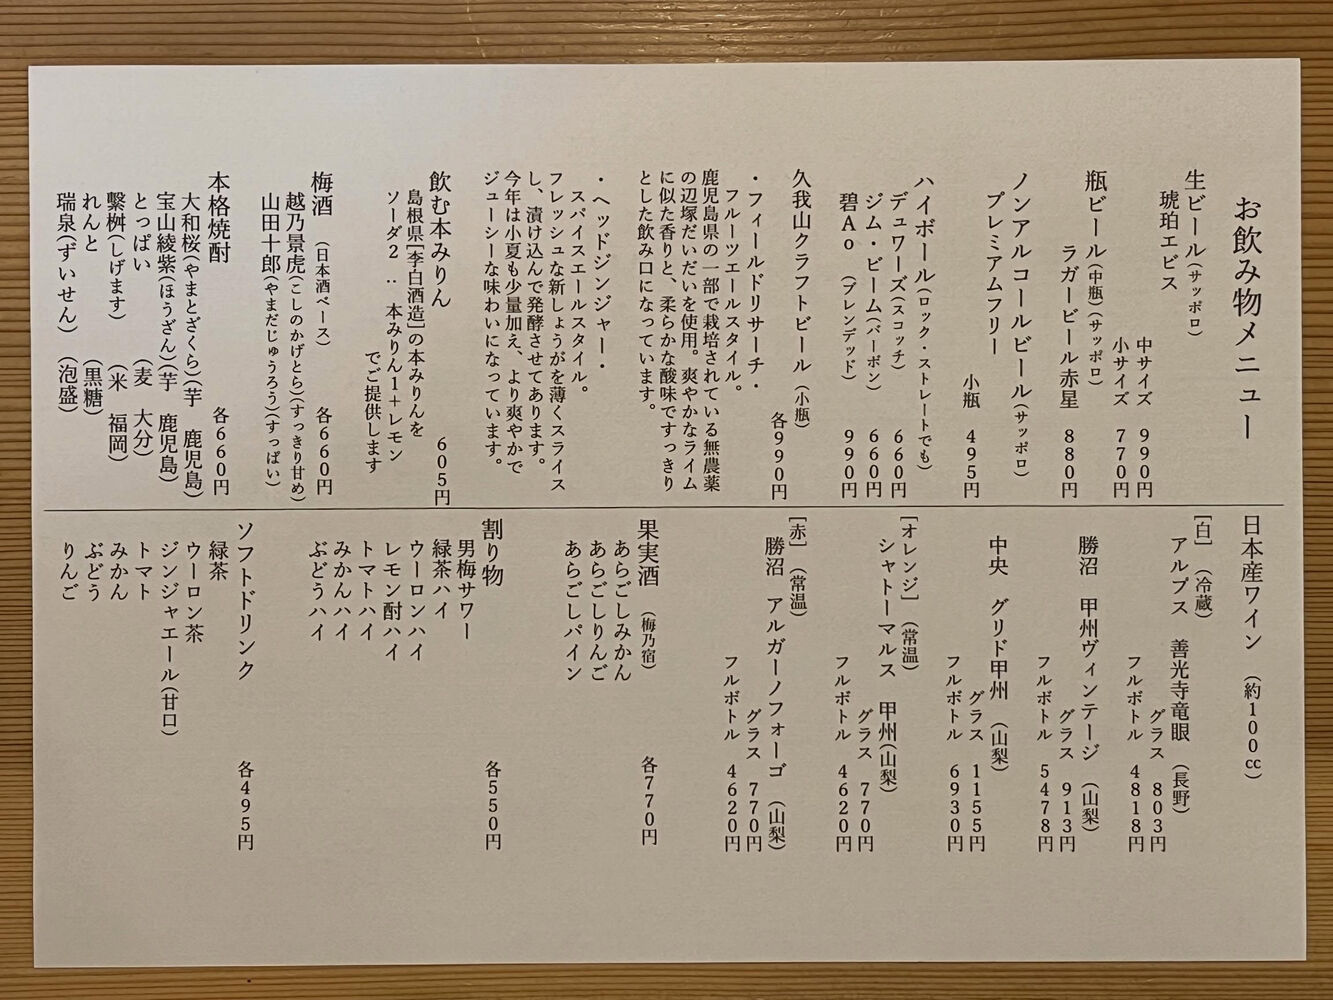 お飲み物メニュー
生ビール(サッポロ)
琥珀エビス
中サイズ 990円
小サイズ 770円
瓶ビール(中瓶)(サッポロ)
ラガービール赤星 880円
ノンアルコールビール(サッポロ)
プレミアムフリー
小瓶 495円
ハイボール(ロック・ストレートでも)
デュワーズ(スコッチ) 660円
ジム・ビーム(バーボン) 660円
碧Ao (ブレンデッド) 990円
久我山クラフトビール(小瓶)
各990円
・フィールドリサーチ・
フルーツエールスタイル。
鹿児島県の一部で栽培されている無農薬
の辺塚だいだいを使用。爽やかなライム
に似た香りと、柔らかな酸味ですっきり
とした飲み口になっています。
・ヘッドジンジャー・
スパイスエールスタイル。
フレッシュな新しょうがを薄くスライス
し、漬け込んで発酵させてあります。
今年は小夏も少量加え、より爽やかで
ジューシーな味わいになっています。
飲む本みりん 605円
島根県[李白酒造]の本みりんを
ソーダ2:本みりん1+レモン
でご提供します
梅酒 (日本酒ベース) 各660円
越乃景虎(こしのかげとら)(すっきり甘め)
山田十郎(やまだじゅうろう)(すっぱい)
本格焼酎 各660円
大和桜(やまとざくら)(芋 鹿児島)
宝山綾紫(ほうざん)(芋 鹿児島)
とっぱい (麦 大分)
繋桝(しげます) (米 福岡)
れんと (黒糖)
瑞泉(ずいせん) (泡盛)
日本産ワイン (約100cc)
[白] (冷蔵)
アルプス 善光寺竜眼 (長野)
グラス 803円
フルボトル 4818円
勝沼 甲州ヴィンテージ (山梨)
グラス 913円
フルボトル 5478円
中央 グリド甲州 (山梨)
グラス 1155円
フルボトル 6930円
[オレンジ] (常温)
シャトーマルス 甲州(山梨)
グラス 770円
フルボトル 4620円
[赤] (常温)
勝沼 アルガーノフォーゴ (山梨)
グラス 770円
フルボトル 4620円
果実酒 (梅乃宿) 各770円
あらごしみかん
あらごしりんご
あらごしパイン
割り物 各550円
男梅サワー
緑茶ハイ
ウーロンハイ
レモン酎ハイ
トマトハイ
みかんハイ
ぶどうハイ
ソフトドリンク 各495円
緑茶
ウーロン茶
ジンジャエール(甘口)
トマト
みかん
ぶどう
りんご